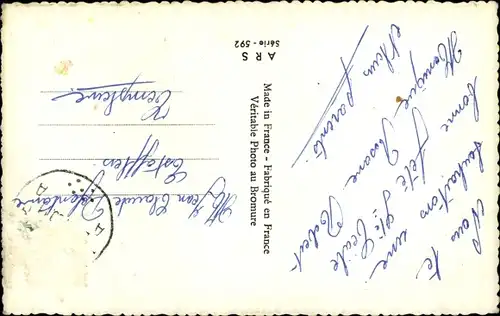 Nous te
souhaitons une
bonne fête Ste Cécile
Monique Roseane Robert
et leurs parents
A R S
Série - 592
Made in France - Fabriqué en France
Véritable Photo au Bromure
Mr Jean Claude
Estafflers
Templeuve